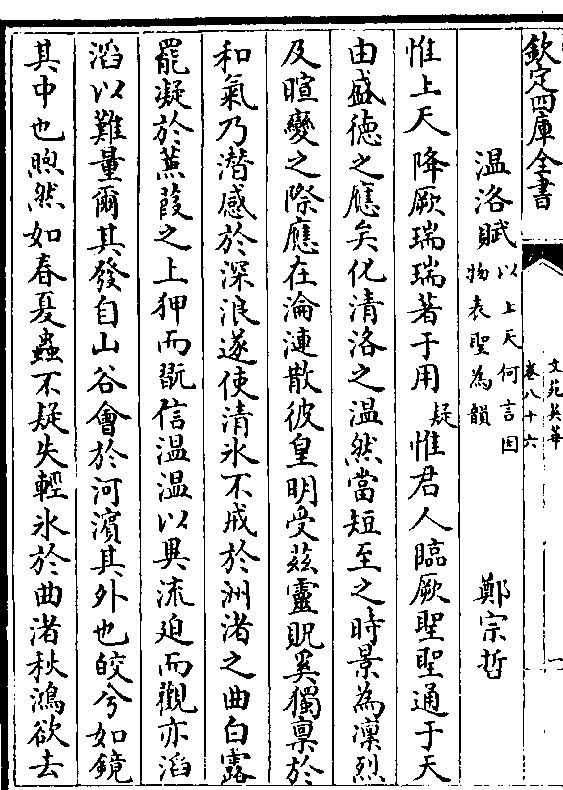 欽定四庫全書
文苑英華
卷八十六
一
溫洛賦以上天何言因物表聖為韻 鄭宗哲
惟上天降厥瑞瑞著于用疑惟君人臨厥聖聖通于天
由盛徳之應矣化清洛之温然當短至之時景為凜烈
及暄變之際應在淪漣散彼皇明受兹靈貺奚獨禀於
和氣乃潛感於深浪遂使清氷不戒於洲渚之曲白露
罷凝於蒹葭之上狎而翫信温温以異流廹而觀亦滔
滔以難量爾其發自山谷會於河濱其外也皎兮如鏡
其中也煦然如春夏蟲不疑失輕氷於曲渚秋鴻欲去